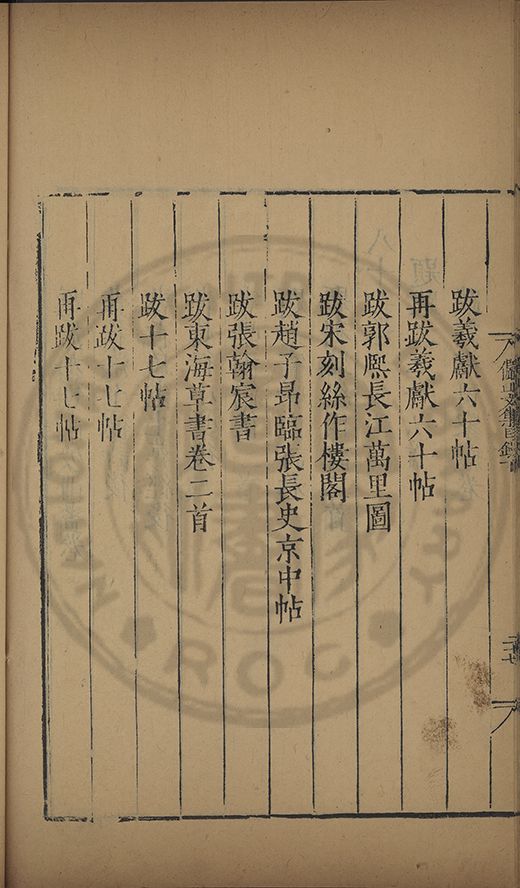 跋羲獻六十帖
再跋羲獻六十帖
跋郭熈長江萬里圖
跋宋刻絲作樓閣
跋趙子昂臨張長史京中帖
跋張翰宸書
跋東海草書卷二首
跋十七帖
再跋十七帖
再跋十七帖